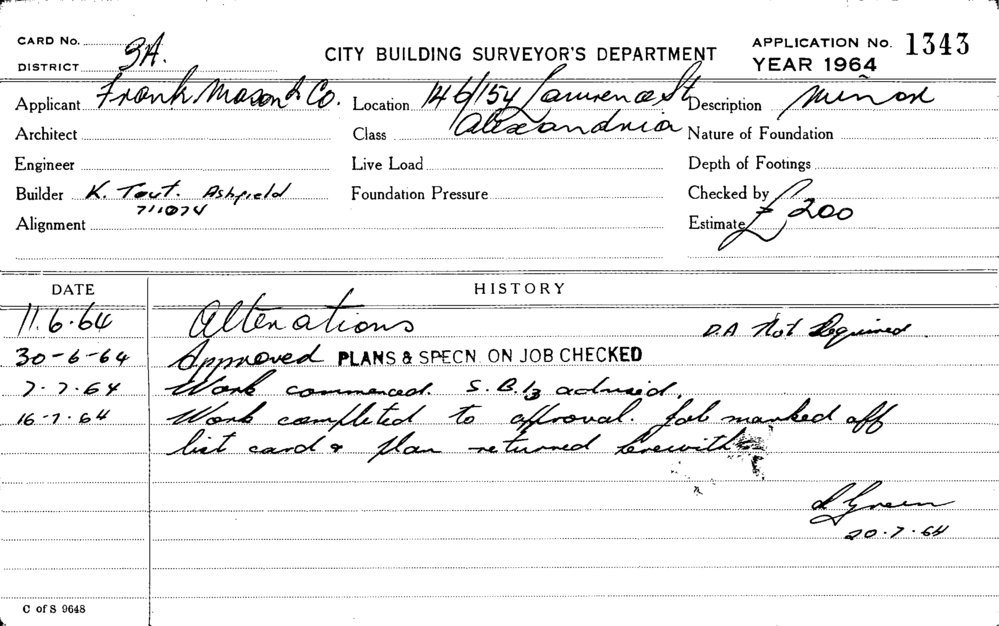 CARD No.
DISTRICT 3A.
CITY BUILDING SURVEYOR'S DEPARTMENT
APPLICATION No. 1343
YEAR 1964
Applicant Frank Mason & Co. Location 146/154 Lawrence St Description Minor
Architect Class Alexandria Nature of Foundation
Engineer Live Load Depth of Footings
Builder K. Tout. Ashfield Foundation Pressure Checked by
711074
Alignment Estimate £200
DATE HISTORY
11.6.64 Alterations D.A Not Required.
30-6-64 Approved PLANS & SPECN. ON JOB CHECKED
7-7-64 Work commenced. S.B. advised.
16-7-64 Work completed to approval. Job marked off
list card & plan returned herewith
Green
20.7.64
C of S 9648